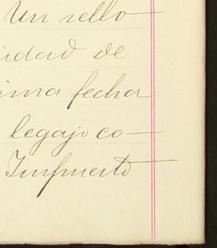 Un sello
idad de
ima fecha
legajo co-